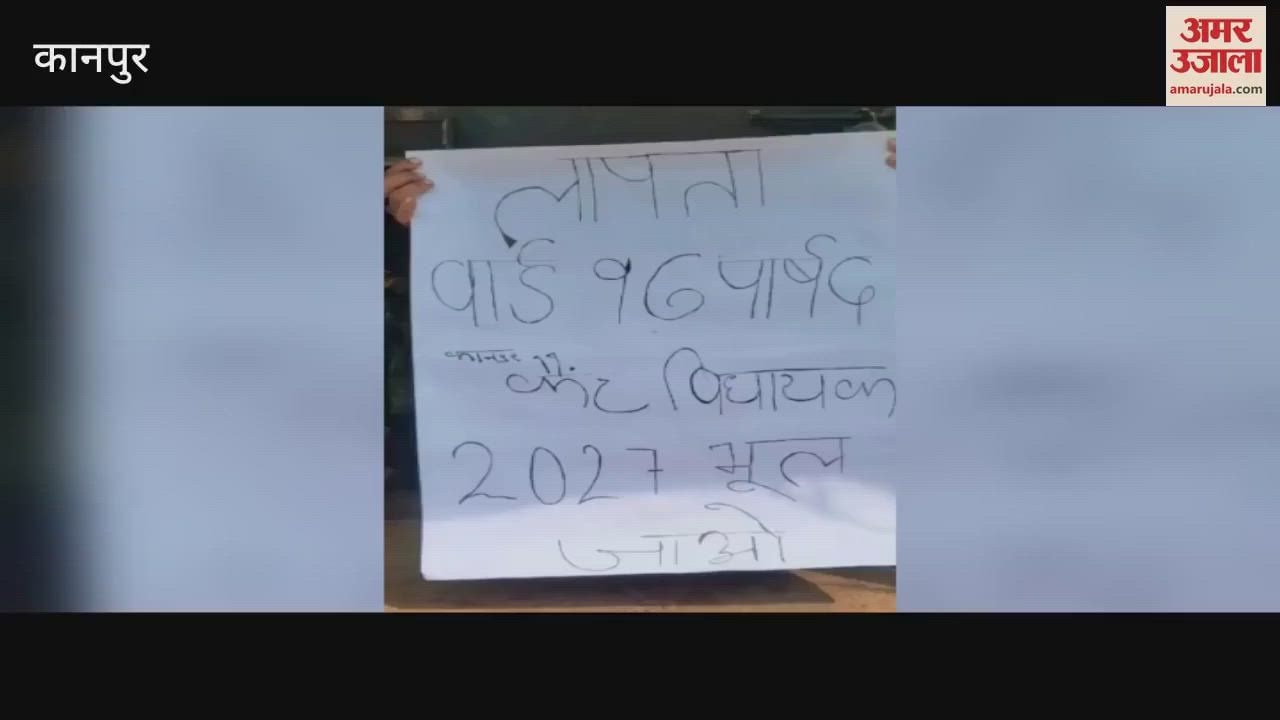 कानपुर
अमर
उजाला
amarujala.com
लापता
वार्ड १७ पार्षद
कानपुर
कैंट विधायक
2027 भूल
जाओ